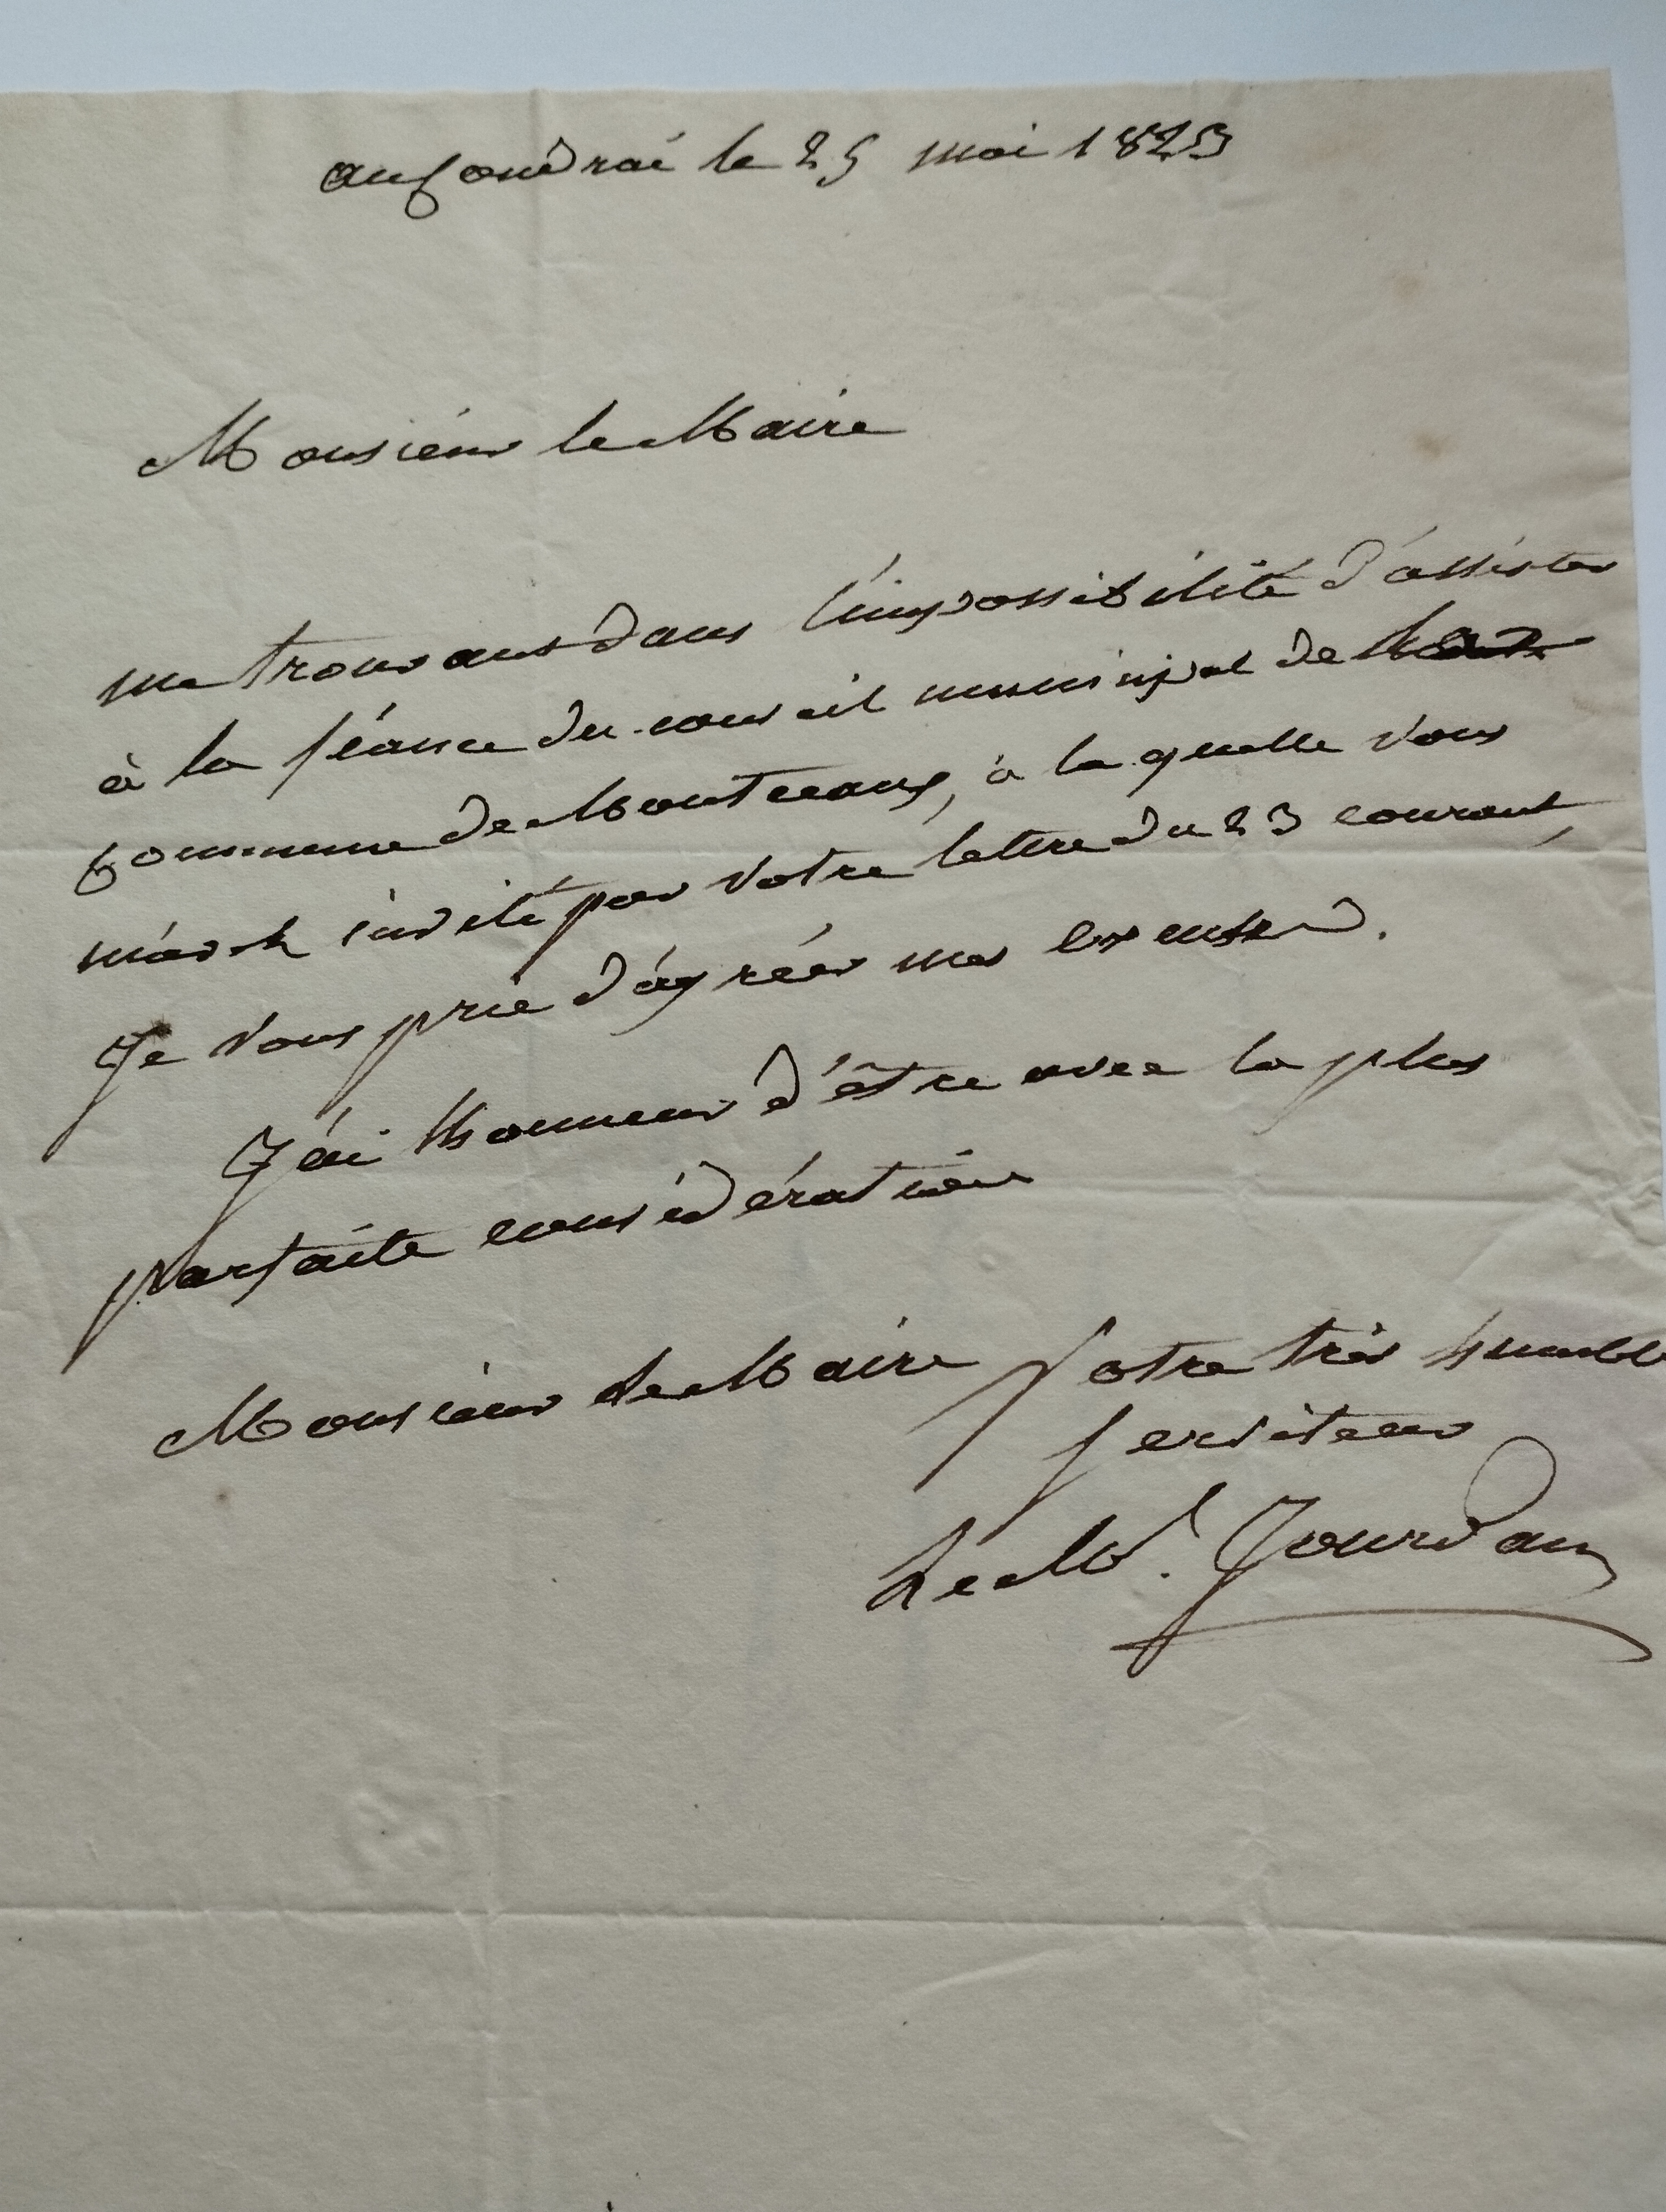 au Coudrai le 25 mai 1823
Monsieur le Maire
me trouvant dans l'impossibilité d'assister
à la séance du conseil municipal de
Commune de Montceaux, à la quelle vous
m'avez invité par votre lettre du 23 courant,
Je vous prie d'agréer mes excuses.
J'ai l'honneur d'être avec la plus
parfaite considération
Monsieur le Maire Votre très humble
serviteur
Le Mal. Jourdan